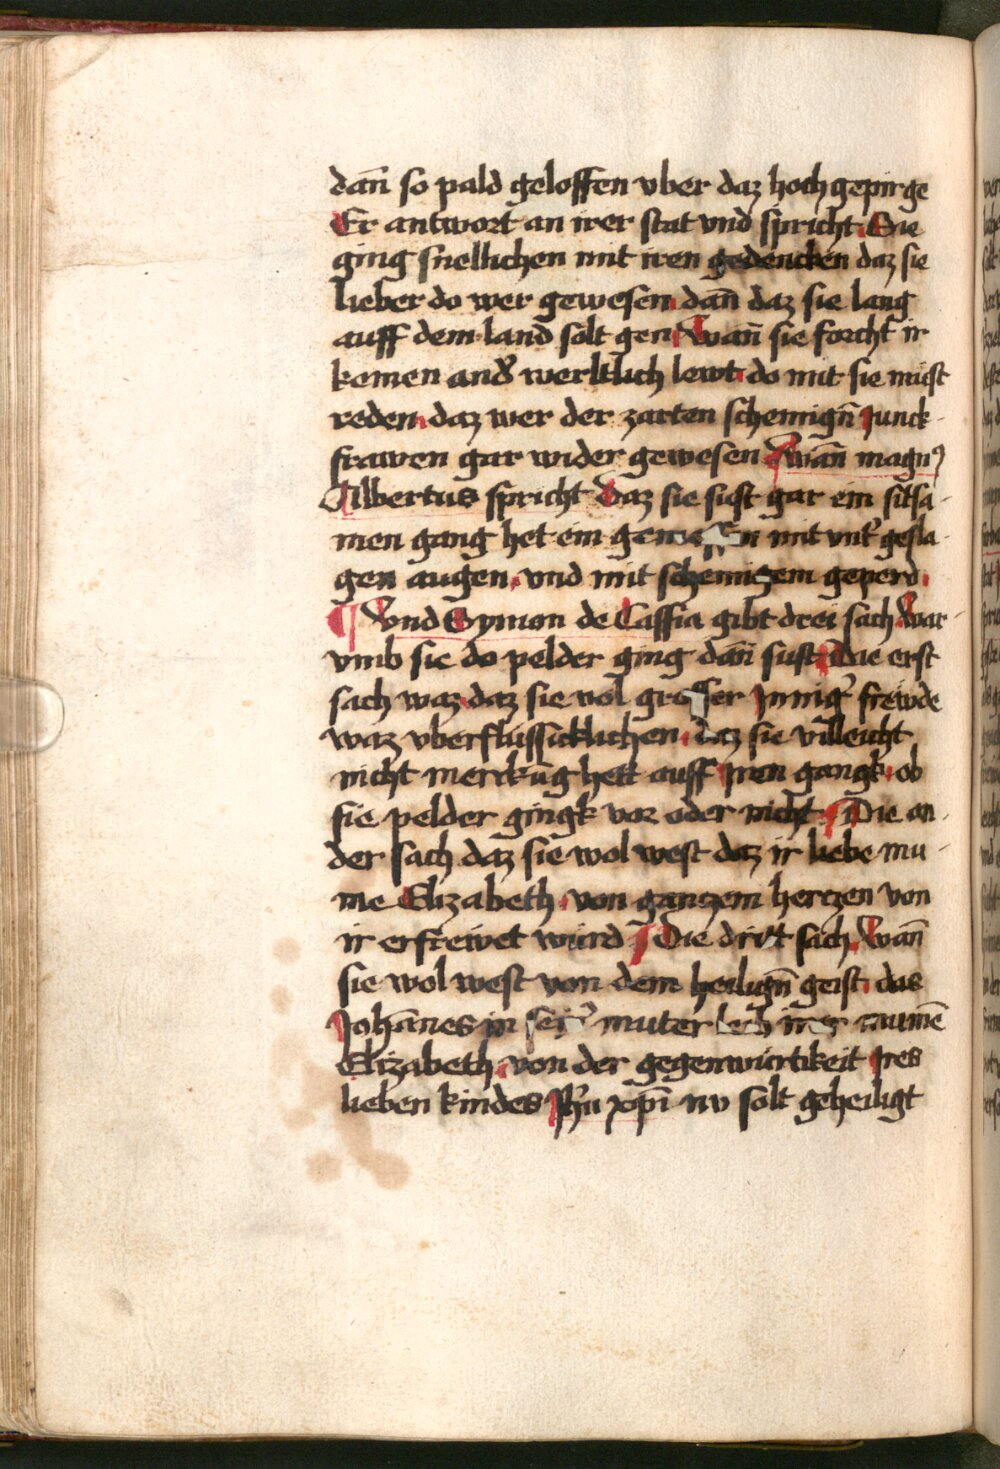 dañ so pald geloffen vber daz hochgepirge
Er antwort an irer stat vnd spricht Sie
ging snellichen mit iren gedencken daz sie
lieber do wer gewesen dañ daz sie lang
auff dem land solt gen Wañ sie forcht ir
kemen and̕ werltlich lewt do mit sie müst
reden daz wer der zarten schemign̄ Junck
frawen gar wider gewesen Wañ magn9
Albertus spricht Daz sie süst gar ein sitsa
men gang het ein mit vnt̕ gesla
gen augen vnd mit schemigem geperd
¶ Vnd Symon de Cassia gibt drei sach War
vmb sie do pelder ging dañ sust Die erst
sach waz daz sie vol grosser Jnnig̕ frewde
waz vberflüssicklichen daz sie villeicht
nicht merckūg hett auff Jren gangk ob
sie pelder gingk vor oder nicht Die an
der sach daz sie wol west daz ir liebe mu
me Elizabeth von ganczem herczen von
ir erfrewet würd Die drit sach Wañ
sie wol west von dem heilign̄ geist das
Johānes in sein̕ muter leib irer mumē
Elizabeth von der gegenwürtikeit Jres
lieben kindes Jhū xpī nv solt geheiligt